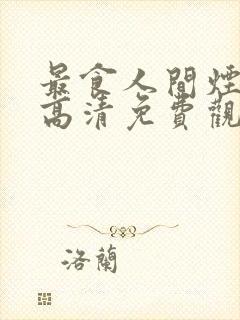 最食人間煙
高清免費觀
洛蘭